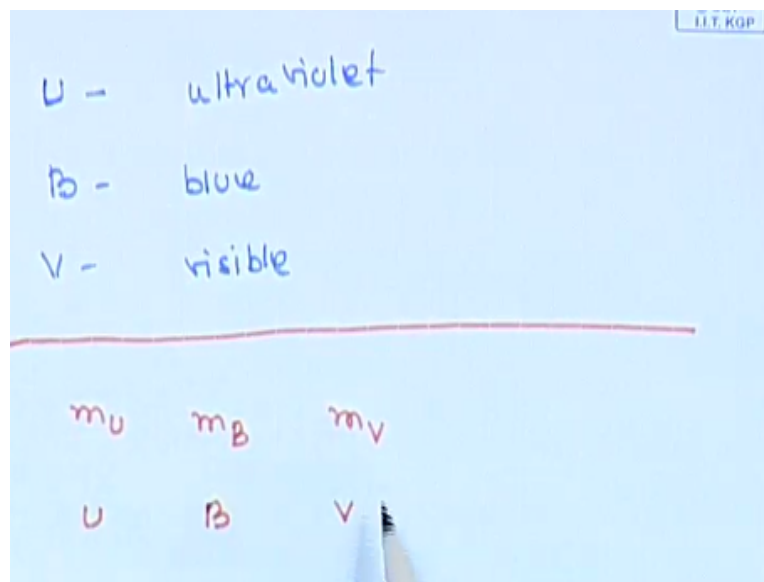 I.I.T. KGP
U - ultraviolet
B - blue
V - visible
mU mB mV
U B V